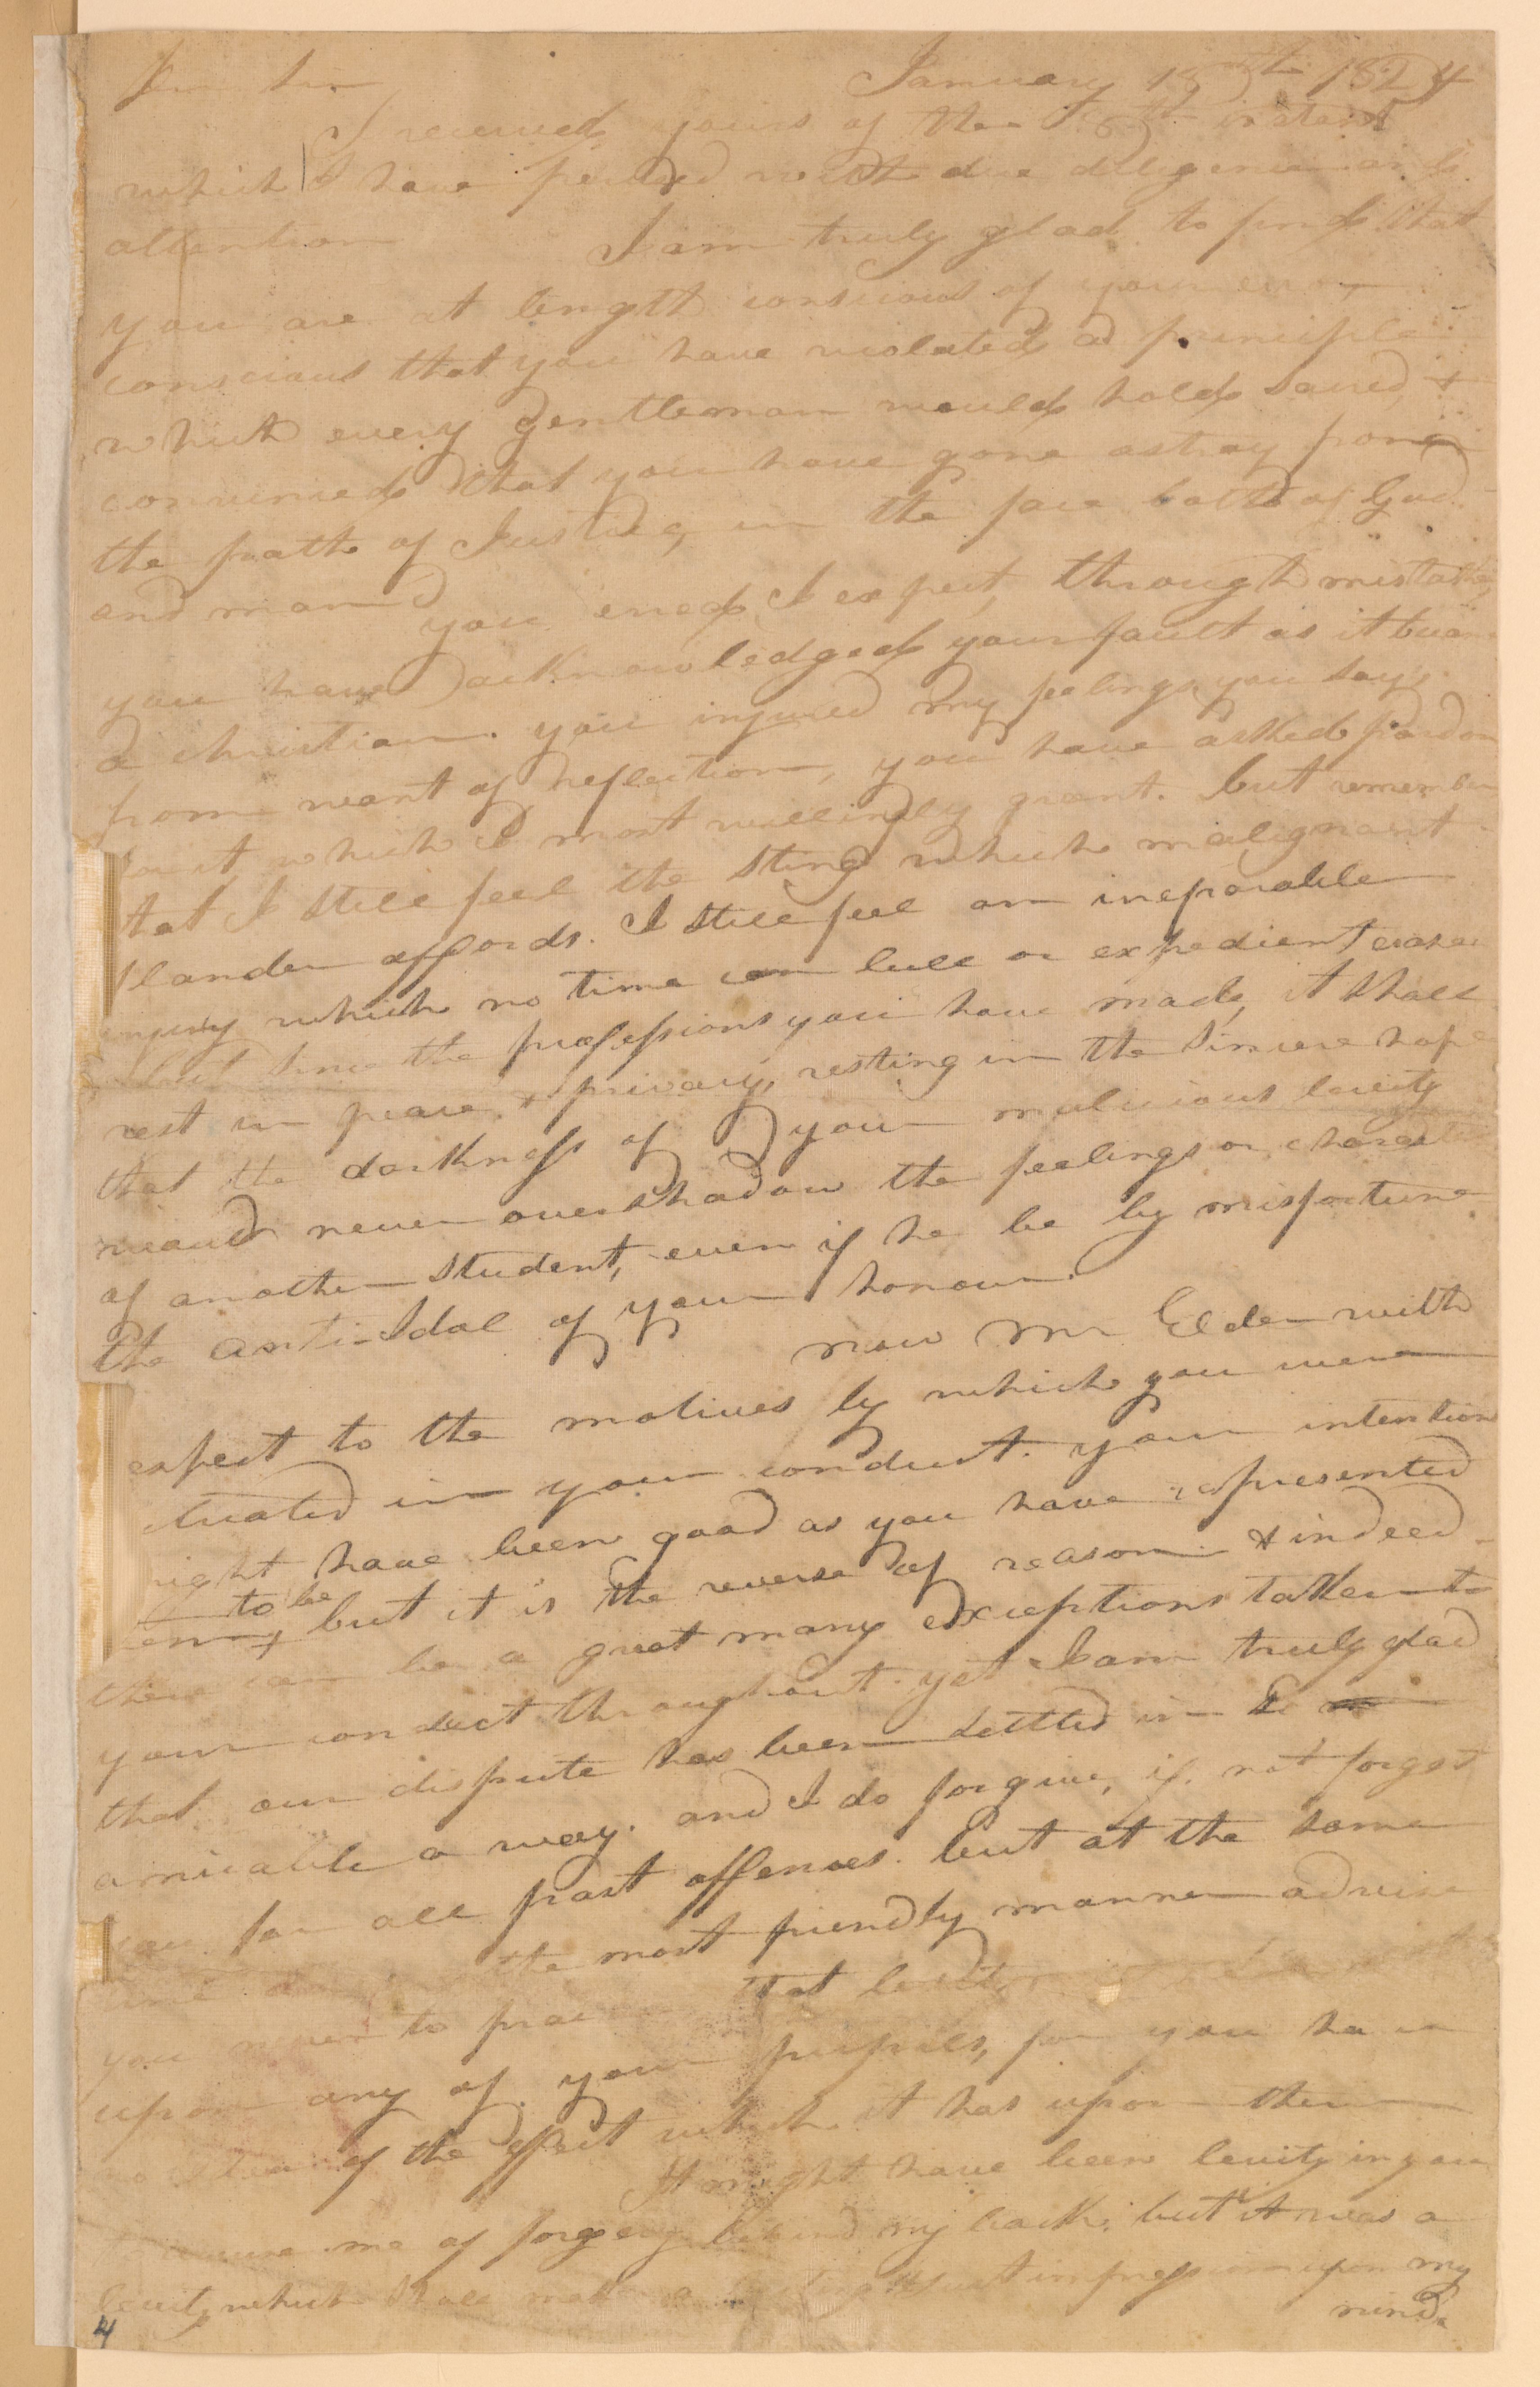 Dear Sir January 15th 1824
I received yours of the instant
which I have perused with due diligence and
attention I am truly glad to find that
you are at length conscious of your error
conscious that you have violated a principle
which every gentleman would hold sacred, &
convinced that you have gone astray from
the path of Justice, in the face both of God
and man you erred, I expect, through mistake,
you have acknowledged your fault as it becomes
a christian. you injured my feelings, you say,
from want of reflection, you have asked pardon
for it, which I most willingly grant. but remember
that I still feel the sting which malignant
slander affords. I still feel an ineparable
injury which no time can lull or expedient erase
but since the professions you have made, it shall
rest in peace & privacy, resting in the sincere hope
that the darkness of your malicious levity
would never overshadow the feelings or character
of another student, even if he be by misfortune
the anti-Idol of your honour.
now Mr Elder with
espect to the motives by which you were
ctuated in your conduct. your intention
might have been good as you have represented
them to be, but it is the reverse of reason & indeed
there can be a great many exceptions taken to
your conduct throughout. yet I am truly glad
that our dispute has been settled in so
amicable a way. and I do forgive, if not forget
you for all past offences. but at the same
time the most friendly manner advise
you never to that levity
upon any of your pupils, for you have
no idea of the effect which it has upon them
It might have been levity in you
to accuse me of forgery behind my back; but it was a
levity which shall make a impression upon my
mind.
4